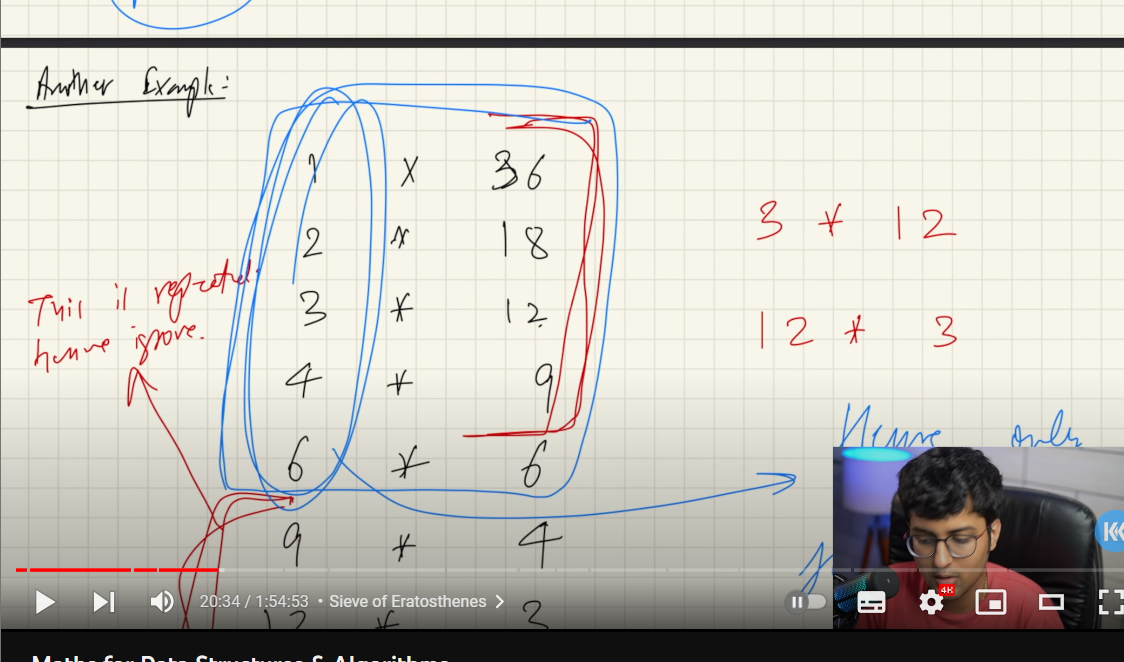 Another Example:
1 x 36
2 * 18
3 * 12
4 * 9
6 * 6
9 * 4
12 * 3
3 * 12
12 * 3
This is repeated
hence ignore.
Hence only
20:34 / 1:54:53 • Sieve of Eratosthenes >
4K
Maths for Data Structures & Algorithms